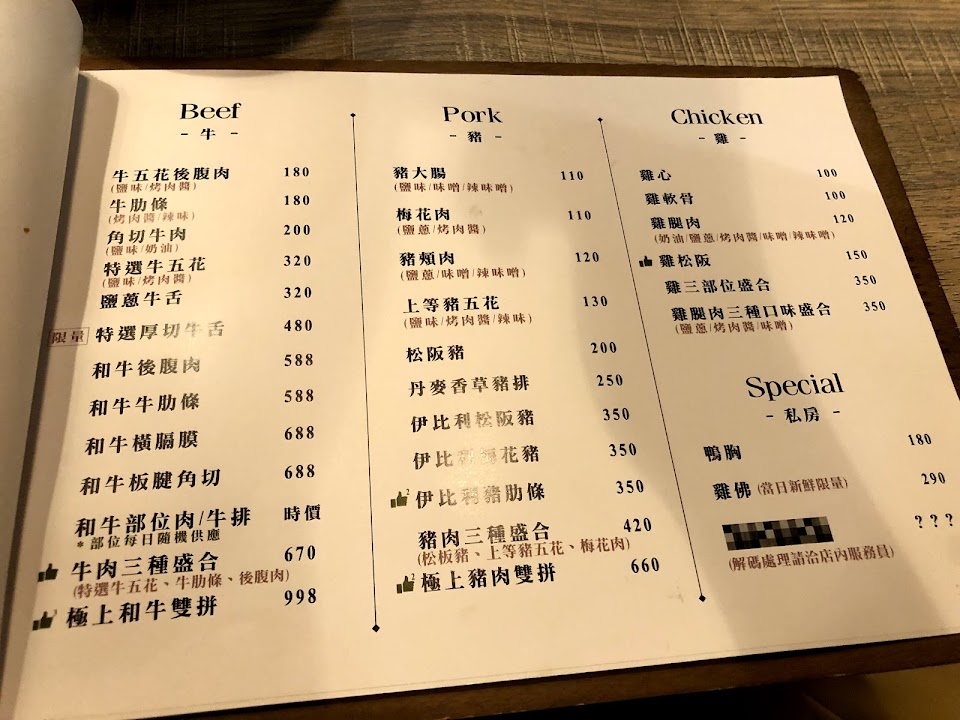 Beef
- 牛 -
牛五花後腹肉 180
(鹽味/烤肉醬)
牛肋條 180
(烤肉醬/辣味)
角切牛肉 200
(鹽味/奶油)
特選牛五花 320
(鹽味/烤肉醬)
鹽蔥牛舌 320
限量 特選厚切牛舌 480
和牛後腹肉 588
和牛牛肋條 588
和牛橫膈膜 688
和牛板腱角切 688
和牛部位肉/牛排 時價
*部位每日隨機供應
牛肉三種盛合 670
(特選牛五花、牛肋條、後腹肉)
極上和牛雙拼 998
Pork
- 豬 -
豬大腸 110
(鹽味/味噌/辣味噌)
梅花肉 110
(鹽蔥/烤肉醬)
豬頰肉 120
(鹽蔥/味噌/辣味噌)
上等豬五花 130
(鹽味/烤肉醬/辣味)
松阪豬 200
丹麥香草豬排 250
伊比利松阪豬 350
伊比利梅花豬 350
2 伊比利豬肋條 350
豬肉三種盛合 420
(松板豬、上等豬五花、梅花肉)
2 極上豬肉雙拼 660
Chicken
- 雞 -
雞心 100
雞軟骨 100
雞腿肉 120
(奶油/鹽蔥/烤肉醬/味噌/辣味噌)
雞松阪 150
雞三部位盛合 350
雞腿肉三種口味盛合 350
(鹽蔥/烤肉醬/味噌)
Special
- 私房 -
鴨胸 180
雞佛 (當日新鮮限量) 290
???
(解碼處理請洽店內服務員)